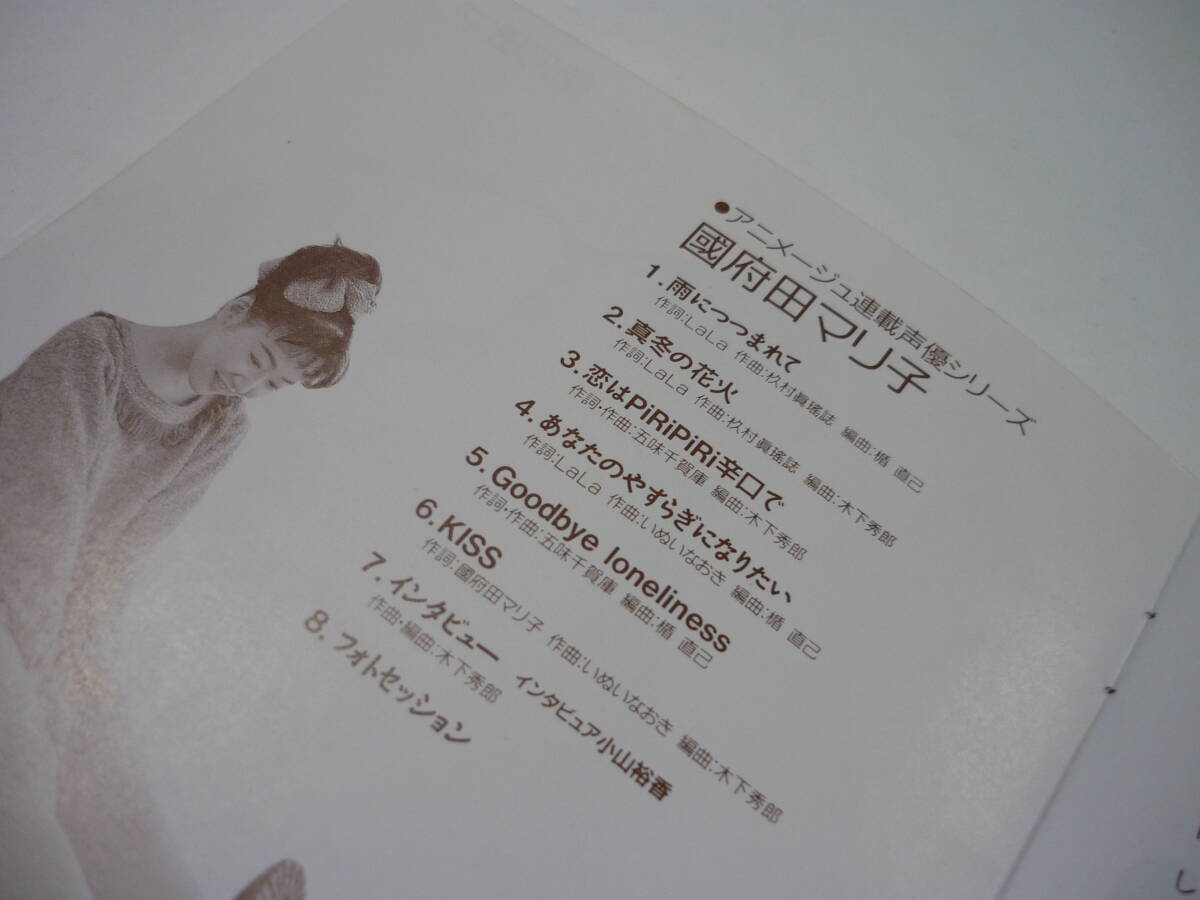 ●アニメージュ連載声優シリーズ
國府田マリ子
1.雨につつまれて
作詞:LaLa 作曲:杦村眞瑤誌 編曲:楯 直己
2.真冬の花火
作詞:LaLa 作曲:杦村眞瑤誌 編曲:木下秀郎
3.恋はPiRiPiRi辛口で
作詞・作曲:五味千賀庫 編曲:木下秀郎
4.あなたのやすらぎになりたい
作詞:LaLa 作曲:いぬいなおき 編曲:楯 直己
5.Goodbye loneliness
作詞・作曲:五味千賀庫 編曲:楯 直己
6.KISS
作詞:國府田マリ子 作曲:いぬいなおき 編曲:木下秀郎
7.インタビュー インタビュア小山裕香
作曲・編曲:木下秀郎
8.フォトセッション
し